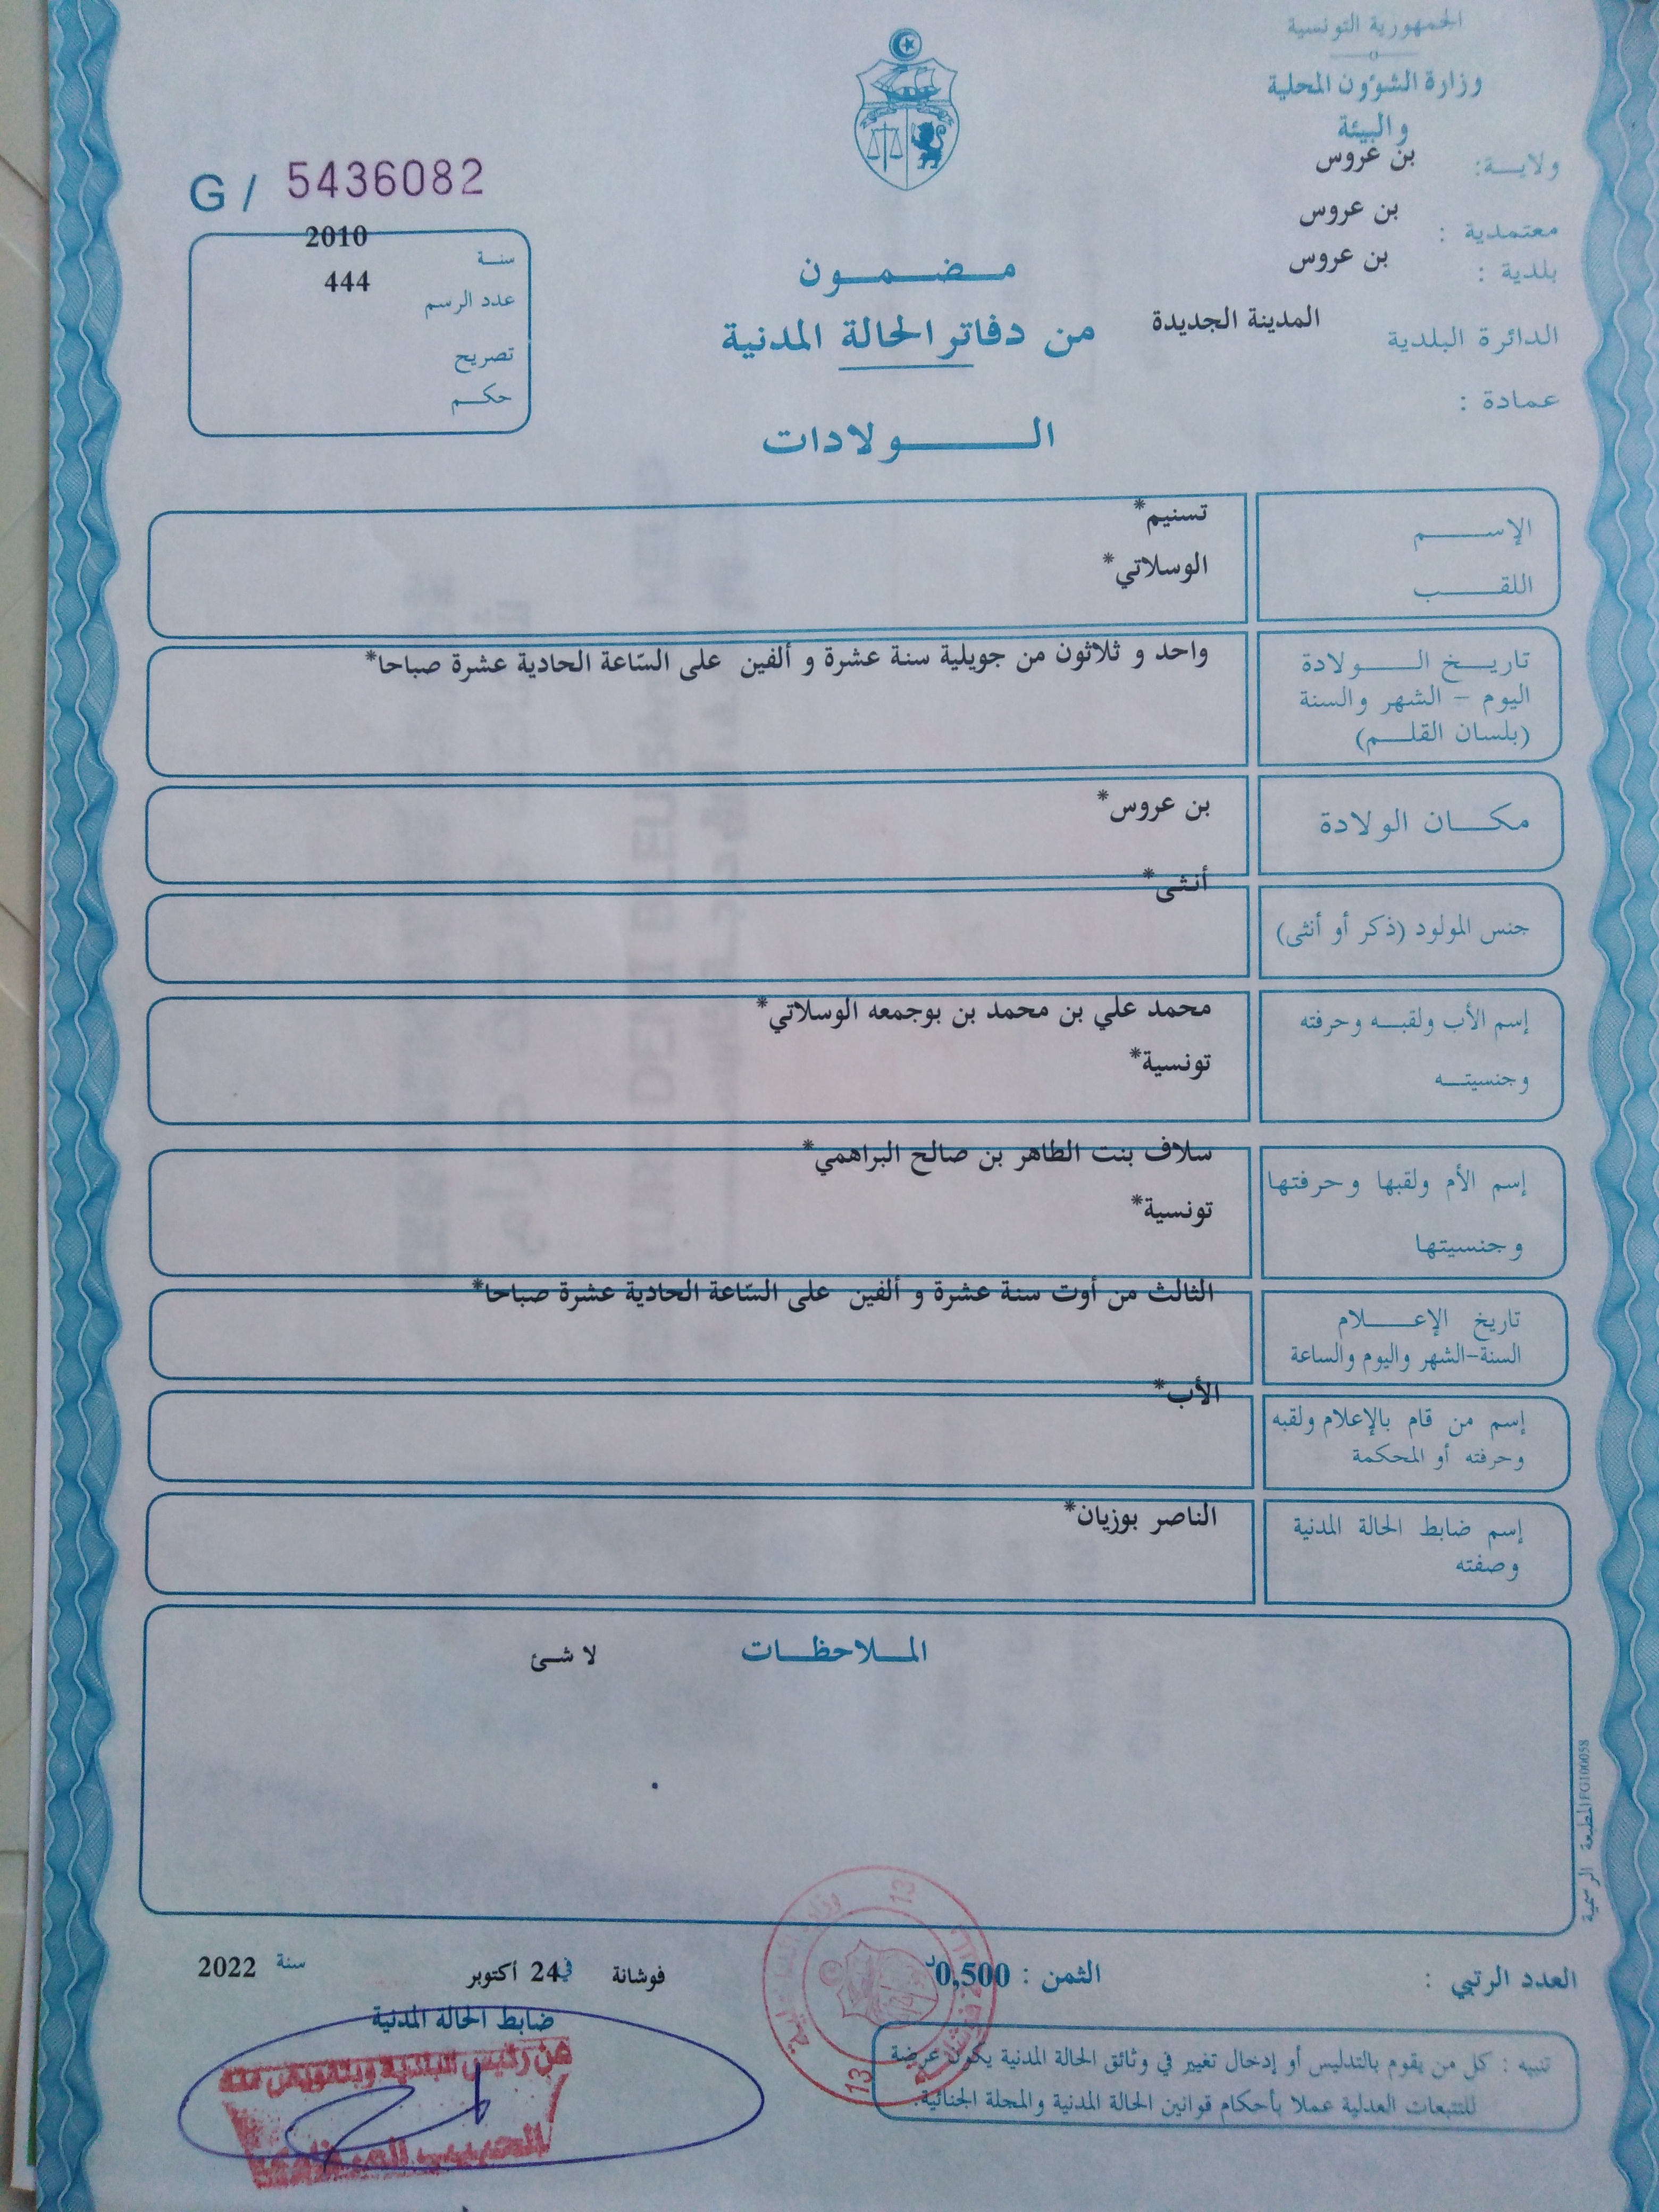 الجمهورية التونسية
وزارة الشؤون المحلية
والبيئة
ولايـــة: بن عروس
معتمدية : بن عروس
بلدية : بن عروس
الدائرة البلدية المدينة الجديدة
عمادة :
G / 5436082
سنــة 2010
عدد الرسم 444
تصريح
حكــم
مــضــمــون
من دفاتر الحالة المدنية
الــــولادات
الإســـم تسنيم*
اللقـــب الوسلاتي*
تاريــخ الـــولادة واحد و ثلاثون من جويلية سنة عشرة و ألفين على السّاعة الحادية عشرة صباحا*
اليوم - الشهر والسنة
(بلسان القلــم)
مكـــان الولادة بن عروس*
جنس المولود (ذكر أو أنثى) أنثى*
إسم الأب ولقبــه وحرفته محمد علي بن محمد بن بوجمعه الوسلاتي*
وجنسيتــه تونسية*
إسم الأم ولقبها وحرفتها سلاف بنت الطاهر بن صالح البراهمي*
وجنسيتها تونسية*
تاريخ الإعـــلام الثالث من أوت سنة عشرة و ألفين على السّاعة الحادية عشرة صباحا*
السنة-الشهر واليوم والساعة
إسم من قام بالإعلام ولقبه الأب*
وحرفته أو المحكمة
إسم ضابط الحالة المدنية الناصر بوزيان*
وصفته
المــلاحظــات لا شئ
المطبعة الرسمية FG100058
العدد الرتبي :
الثمن : 0,500د
فوشانة في 24 أكتوبر سنة 2022
ضابط الحالة المدنية
عن رئيس البلدية وبتفويض منه
الحبيب
13
13
تنبيه : كل من يقوم بالتدليس أو إدخال تغيير في وثائق الحالة المدنية يكون عرضة
للتتبعات العدلية عملا بأحكام قوانين الحالة المدنية والمجلة الجنائية.